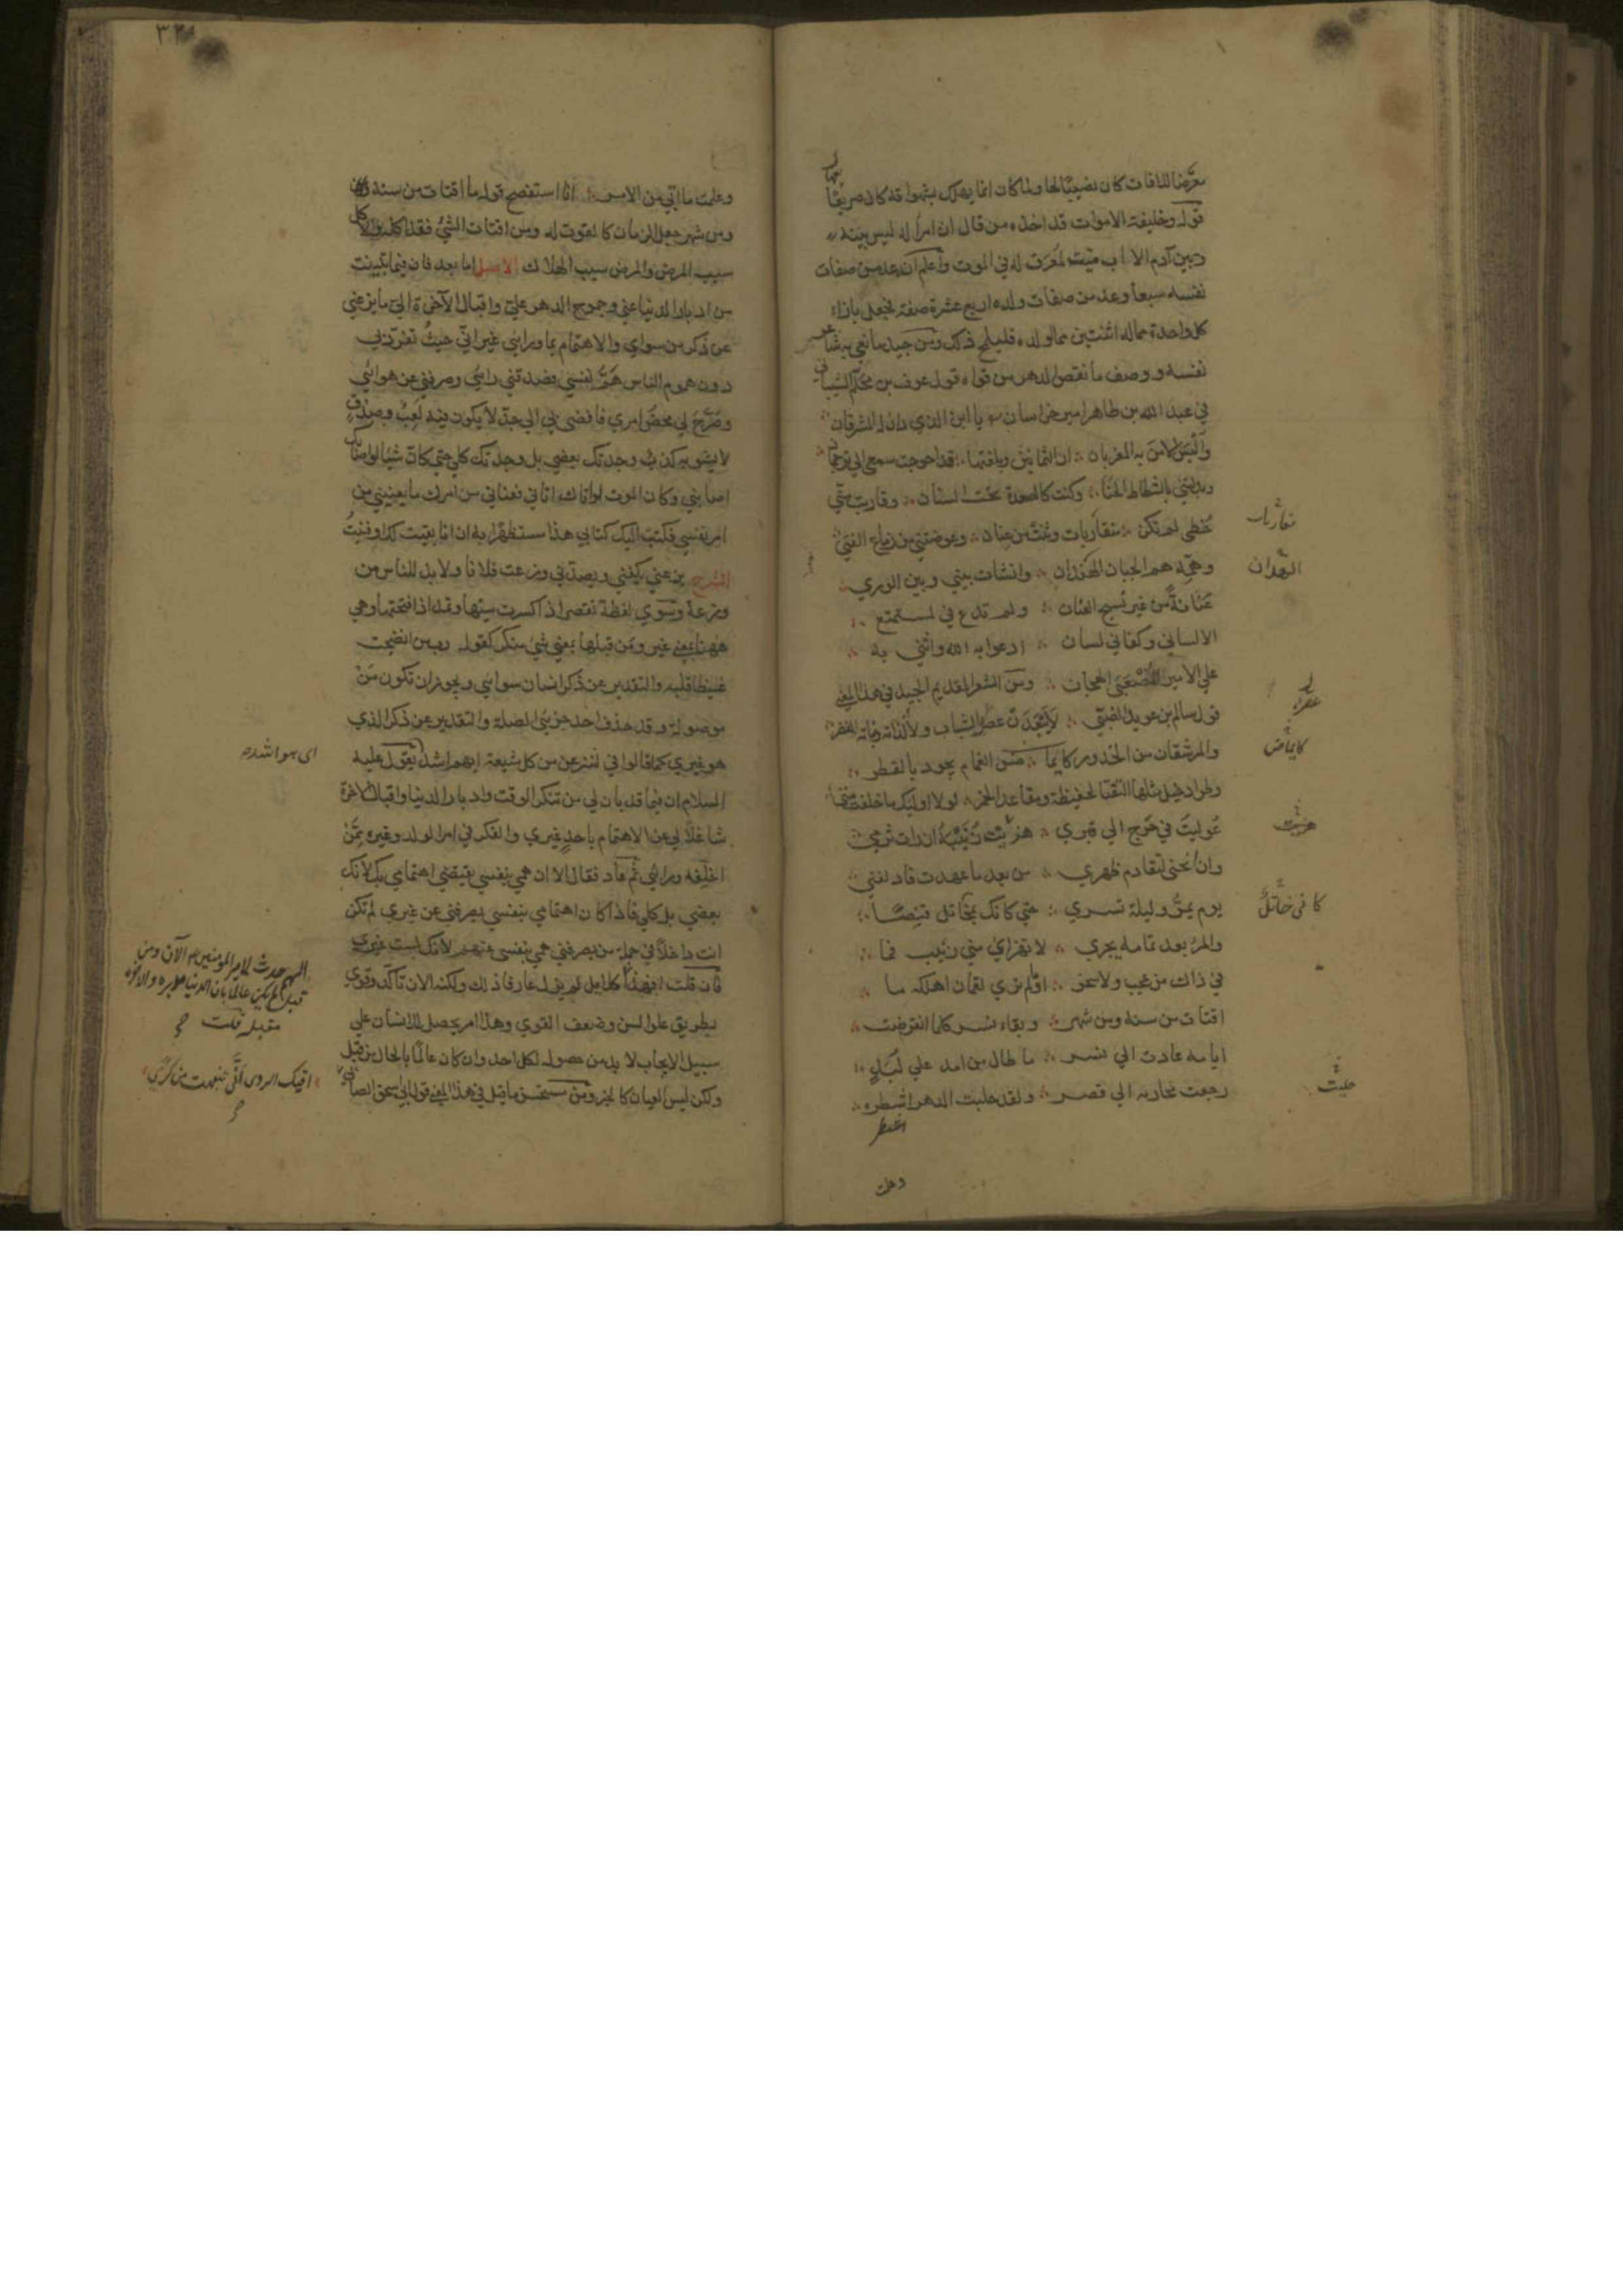 معرضا للافات كان نصيبا لها ولما كان انما يهلك بشهواته كان صريعا لها
قوله وخليفة الاموات قد اخذه من قال ان امرأ ليس بينه
وبين آدم الا اب ميت لمعرق له في الموت واعلم انه عد من صفات
نفسه سبعا وعد من صفات ولده اربع عشرة صفة فجعل بازاء
كل واحدة مما له اثنتين مما لولده فليلمح ذلك ومن جيد ما نعي به شاعر
نفسه ووصف ما نقص الدهر من قواه قول عوف بن محلم الشيباني
في عبد الله بن طاهر امير خراسان يا ابن الذي دان له المشرقان
والبس الامن به المغربان ان الثمانين وبلغتها قد احوجت سمعي الى ترجمان
وبدلتني بالشطاط الحنا وكنت كالصعدة تحت السنان وقاربت مني
خطى لم تكن مقاربات وثنت من عنان وعوضتني من زماع الفتى
وهمه هم الجبان الهدان وانشات بيني وبين الورى
عنانة من غير نسج العنان ولم تدع في لمستمتع
الا لساني وكفاني لسان ادعو به الله واثني به
على الامير المصعبي الهجان ومن الشعر القديم الجيد في هذا المعنى
قول سالم بن عويد الضبي لا يبعدن عصر الشباب ولا لذاته ونباته النضر
والمرشقات من الخدور كايماض الغمام يجود بالقطر
وطراد خيل مثلها التقتا لحفيظة ومقاعد الخمر لولا اوليك ما حفلت متى
عوليت في حرج الى قبري هزئت زنيبة ان رات ثرمي
وان انحنى لتقادم ظهري من بعد ما عهدت فادلفني
يوم يمر وليلة تسري حتى كانك تخاتل قنصا
والمرء بعد تمامه يجري لا تهزاي مني زنيب فما
في ذاك من عجب ولا سخر اولم تري لقمان اهلكه ما
اقتات من سنة ومن شهر وبقاء نسر كلما انقرضت
ايامه عادت الى نسر ما طال من امد على لبد
رجعت محارته الى قصر ولقد حلبت الدهر اشطره
وعلمت
متقاربات
الهدان
كايماض
هزئت
كاني خاتل
حلبت
وعلمت ما اتي من الامر انا استفصح قوله ما اقتات من سنة
ومن شهر جعل الزمان كالقوت له ومن اقتات الشيء فقد اكله والاكل
سبب المرض والمرض سبب الهلاك الاصل اما بعد فان فيما تبينت
من ادبار الدنيا عني وجموح الدهر علي واقبال الآخرة الي ما يزعني
عن ذكر من سواي والاهتمام بما ورائي غير اني حيث تفرد بي
دون هموم الناس هم نفسي فصدقني رايي وصرفني عن هوائي
وصرح لي محض امري فافضى بي الى جد لا يكون فيه لعب وصدق
لا يشوبه كذب وجدتك بعضي بل وجدتك كلي حتى كان شيئا لو اصابك
اصابني وكان الموت لو اتاك اتاني فعناني من امرك ما يعنيني من
امر نفسي فكتبت اليك كتابي هذا مستظهرا به ان انا بقيت لك او فنيت
الشرح يزعني يكفني ويصدني وزعت فلانا ولا بد للناس من
وزعة وسوى لفظة تقصر اذا كسرت سينها وتمد اذا فتحتها وهي
ههنا بمعنى غير ومن قبلها بمعنى شيء منكر كقوله رب من انضجت
غيظا قلبه والتقدير عن ذكر انسان سواي ويجوز ان تكون من
موصولة وقد حذف احد جزئي الصلة والتقدير عن ذكر الذي
هو غيري كما قالوا في لننزعن من كل شيعة ايهم اشد يقول عليه
السلام ان فيما قد بان لي من تنكر الوقت وادبار الدنيا واقبال الاخرة
شاغلا لي عن الاهتمام باحد غيري والفكر في امر الولد وغيره ممن
اخلفه ورائي ثم عاد فقال الا ان همي بنفسي يقتضي اهتمامي بك لانك
بعضي بل كلي فاذا كان اهتمامي بنفسي يصرفني عن غيري لم تكن
انت داخلا في جملة من يصرفني همي بنفسي عنهم لانك لست غيري
فان قلت افهذا كلامه لم يزل عارفا ذلك ولكنه الان تاكد وقوي
بطريق علو السن وضعف القوى وهذا امر يحصل للانسان على
سبيل الايجاب لا بد من حصوله لكل احد وان كان عالما بالحال من قبل
ولكن ليس العيان كالخبر ومن مستحسن ما قيل في هذا المعنى قول ابي اسحق الصابي
اي هو اشده